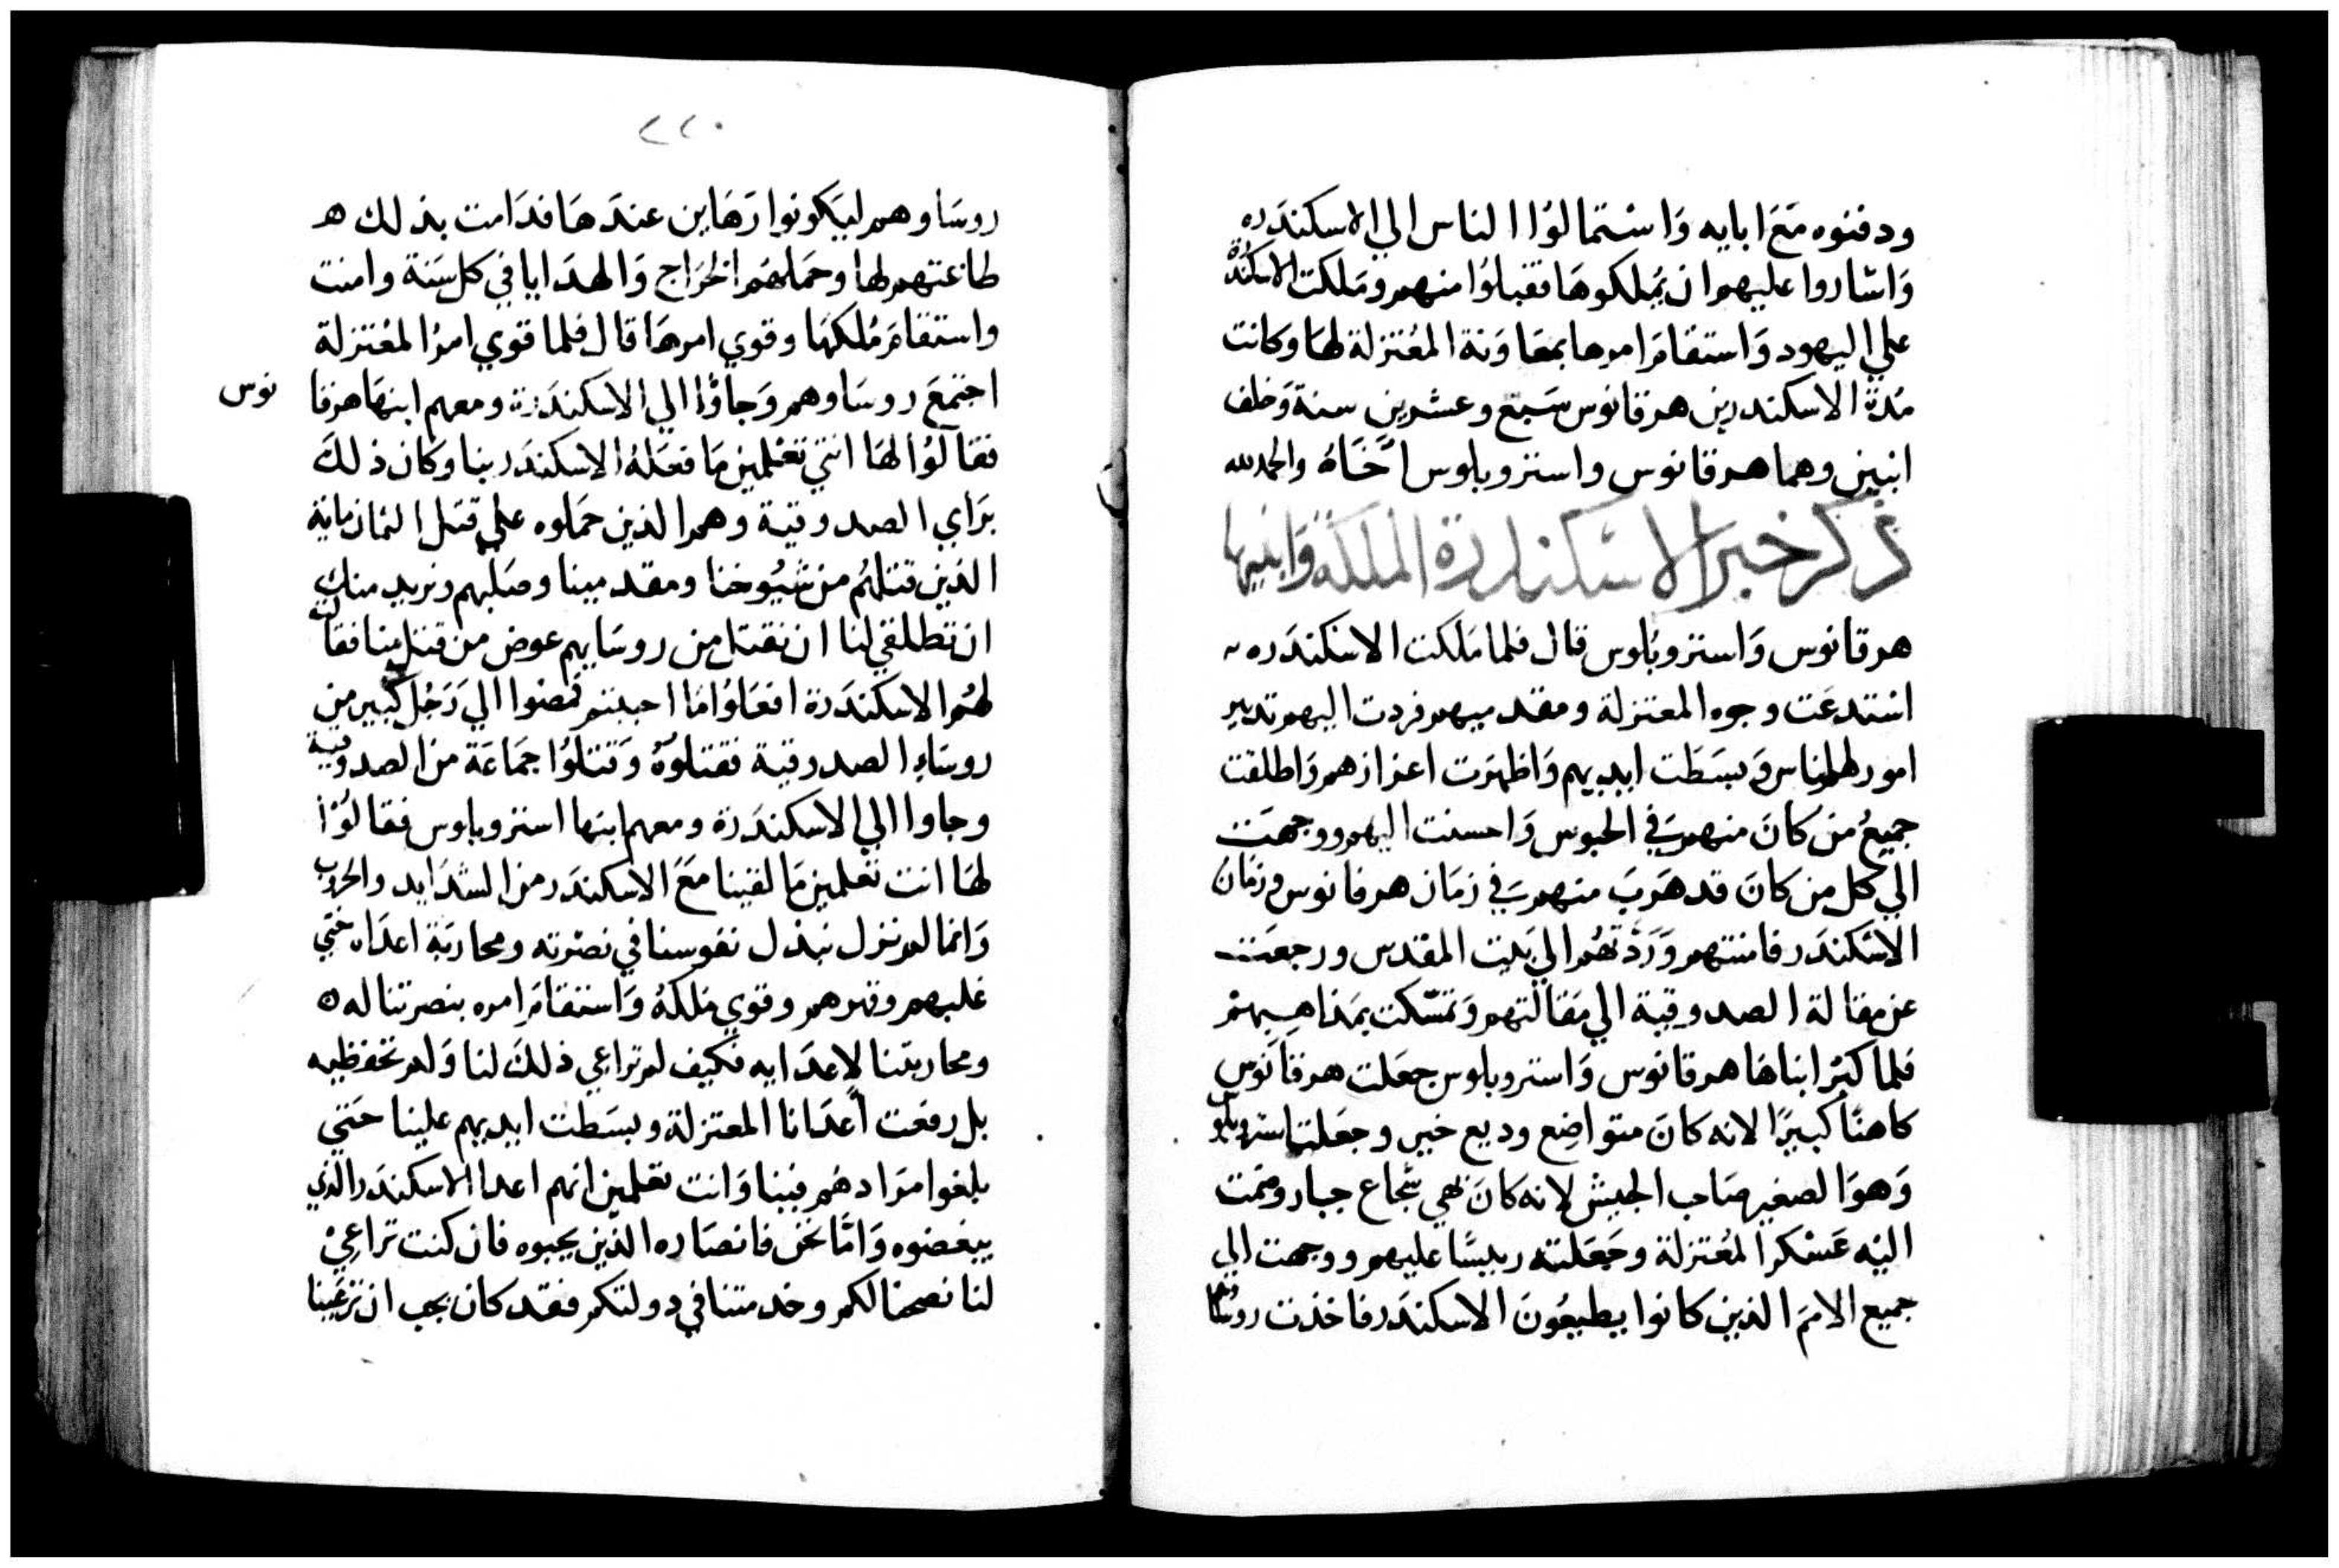 ودفنوه مَعَ ابايه وَاسْتمالوُا الناس الي الاسكندَره
وَاشاروا عليهم ان يُملكوهَا فقبلوُا منهم ومَلكت الاسكندَرة
علي اليهود وَاستقامَ امرها بمعَاوَنة المُعتزلة لهَا وكانت
مُدة الاسكندر بن هرقانوس سَبع وعشرين سنة وَخلف
ابنين وهما هرقانوس واستروبلوس اخَاهُ والحمد لله
ذكر خبر الاسكندرة الملكة وَابنيها
هرقانوس وَاستروبُلوس قال فلما مَلكت الاسكندَره
اسْتدعَت وجوه المعتزلة ومقدميهم فردت اليهم تدبير
امور الناس وَبسَطت ايديهم وَاظهرَت اعزازهم وَاطلقت
جميعُ مَن كانَ منهم في الحبوس وَاحسنت اليهم ووجهَت
الي كل من كانَ قد هَربَ منهم في زمَان هرقانوس وزمَان
الاسْكندَر فامنتهم وَرَدتهُم الي بَيت المقدس ورجعَت
عن مقالة الصدوقية الي مَقالتهم وَتمسّكت بمَذاهِبهمْ
فلما كبُر ابناهَا هرقانوس وَاستروبلوس جعَلت هرقانوس
كاهنًا كبيرًا لانه كانَ متواضِع وديع خير وجعَلت استروبلوس
وَهوَ الصغير صَاحب الجيش لانه كانَ نحي شجاع جبار وضمت
اليْه عَسْكر المُعتزلة وجَعَلته رييسًا عليهم ووجهت الي
جميع الاممَ الذين كانوا يطيعُونَ الاسكندَر فاخذت روسَاهم
٢٢٠
روسَاوهم ليَكونوا رَهَاين عندَهَا فدَامت بذلك
طاعتهم لها وحمَلهُم الخرَاج وَالهدَايا في كل سَنة وامنت
واستقامَ مُلكهَا وقوي امرهَا قال فلما قوي امرُ المُعتزلة
اجتمعَ روسَاوهم وَجاوُا الي الاسكندَرة ومعهم ابنهَا هرقا نوس
فقالوُا لهَا انتي تعْلمين مَا فعَلهُ الاسكندَر بنا وكان ذلكَ
برَاي الصدوقية وهم الذين حمَلوه علي قتل الثمان ماية
الذين قتلهُم من شيُوخنا ومقدمينا وصَلبهم ونريد منك
ان تطلقي لنا ان نقتل من روسَايهم عوض من قتل منا فقالت
لهُم الاسكندَرة افعَلوُا مَا احببتم فمضوا الي رَجُل كبير من
روسَاءِ الصدوقية فقتلوهُ وَقتلوُا جمَاعَة من الصدوقية
وجاوا الي الاسكندَرة ومعهم ابنها استروبلوس فقالوُا
لهَا انت تعلمين مَا لقينا مَعَ الاسكندَر من الشدَايد والحروب
وَاننا لم نزل نبذل نفوسنا في نصْرته ومحاربَة اعدَاه حَتي
غلبهم وقهرهم وقوي مَلكهُ وَاستقامَ امره بنصرتنا له
ومحاربتنا لاعدَايه فكيف لم تراعي ذلكَ لنا وَلم تحفظيه
بل رفعت اعدَانا المعتزلة وبسَطت ايديهم علينا حَتي
بلغوا مرَادهُم فينا وَانت تعلمين انهم اعدا الاسكندَر الذي
يبغضوه وَامَّا نحن فانصَاره الذين يحبوه فان كنت تراعِيْ
لنا نصحنا لكم وخدمتنا في دولتكم فقد كان يجب ان تزعَينا